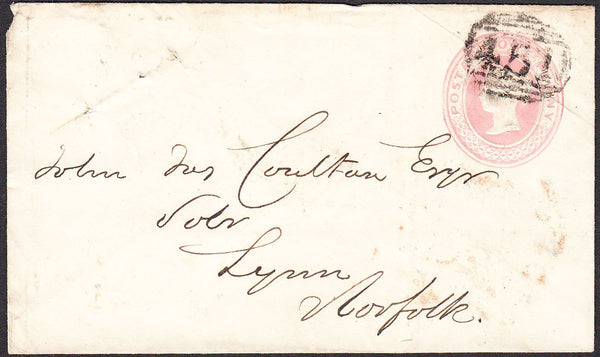 POSTAGE ONE PENNY
John Jas Coulton Esqr
Solr
Lynn
Norfolk.